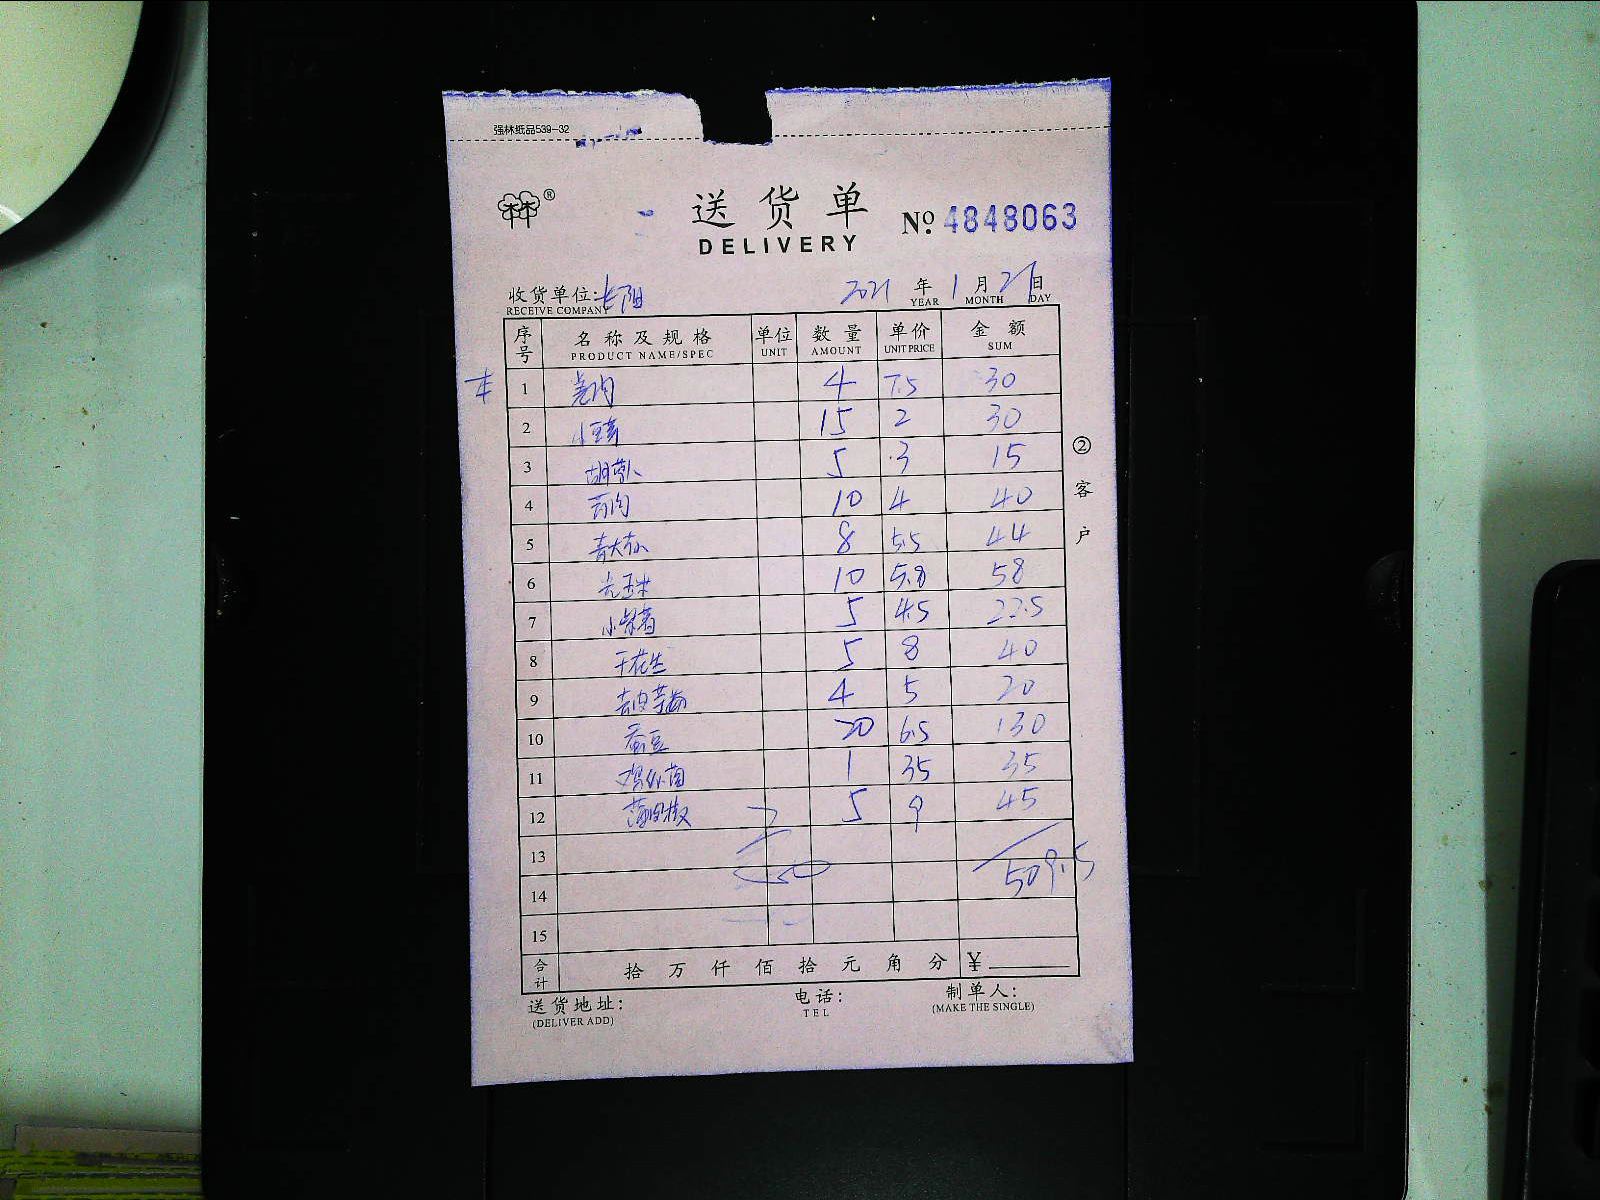 强林纸品539-32
林林®
送货单
DELIVERY
№ 4848063
收货单位: 长阳 2021 年 1 月 21 日
RECEIVE COMPANY YEAR MONTH DAY
序号 名称及规格 单位 数量 单价 金额
PRODUCT NAME/SPEC UNIT AMOUNT UNIT PRICE SUM
1 4 7.5 30
2 15 2 30
3 胡萝卜 5 3 15
4 10 4 40
5 8 5.5 44
6 玉米 10 5.8 58
7 5 4.5 22.5
8 干花生 5 8 40
9 4 5 20
10 蚕豆 20 6.5 130
11 1 35 35
12 薄皮椒 5 9 45
13
14 509.5
15
合计 拾 万 仟 佰 拾 元 角 分 ¥
送货地址: 电话: 制单人:
(DELIVER ADD) TEL (MAKE THE SINGLE)
②客户